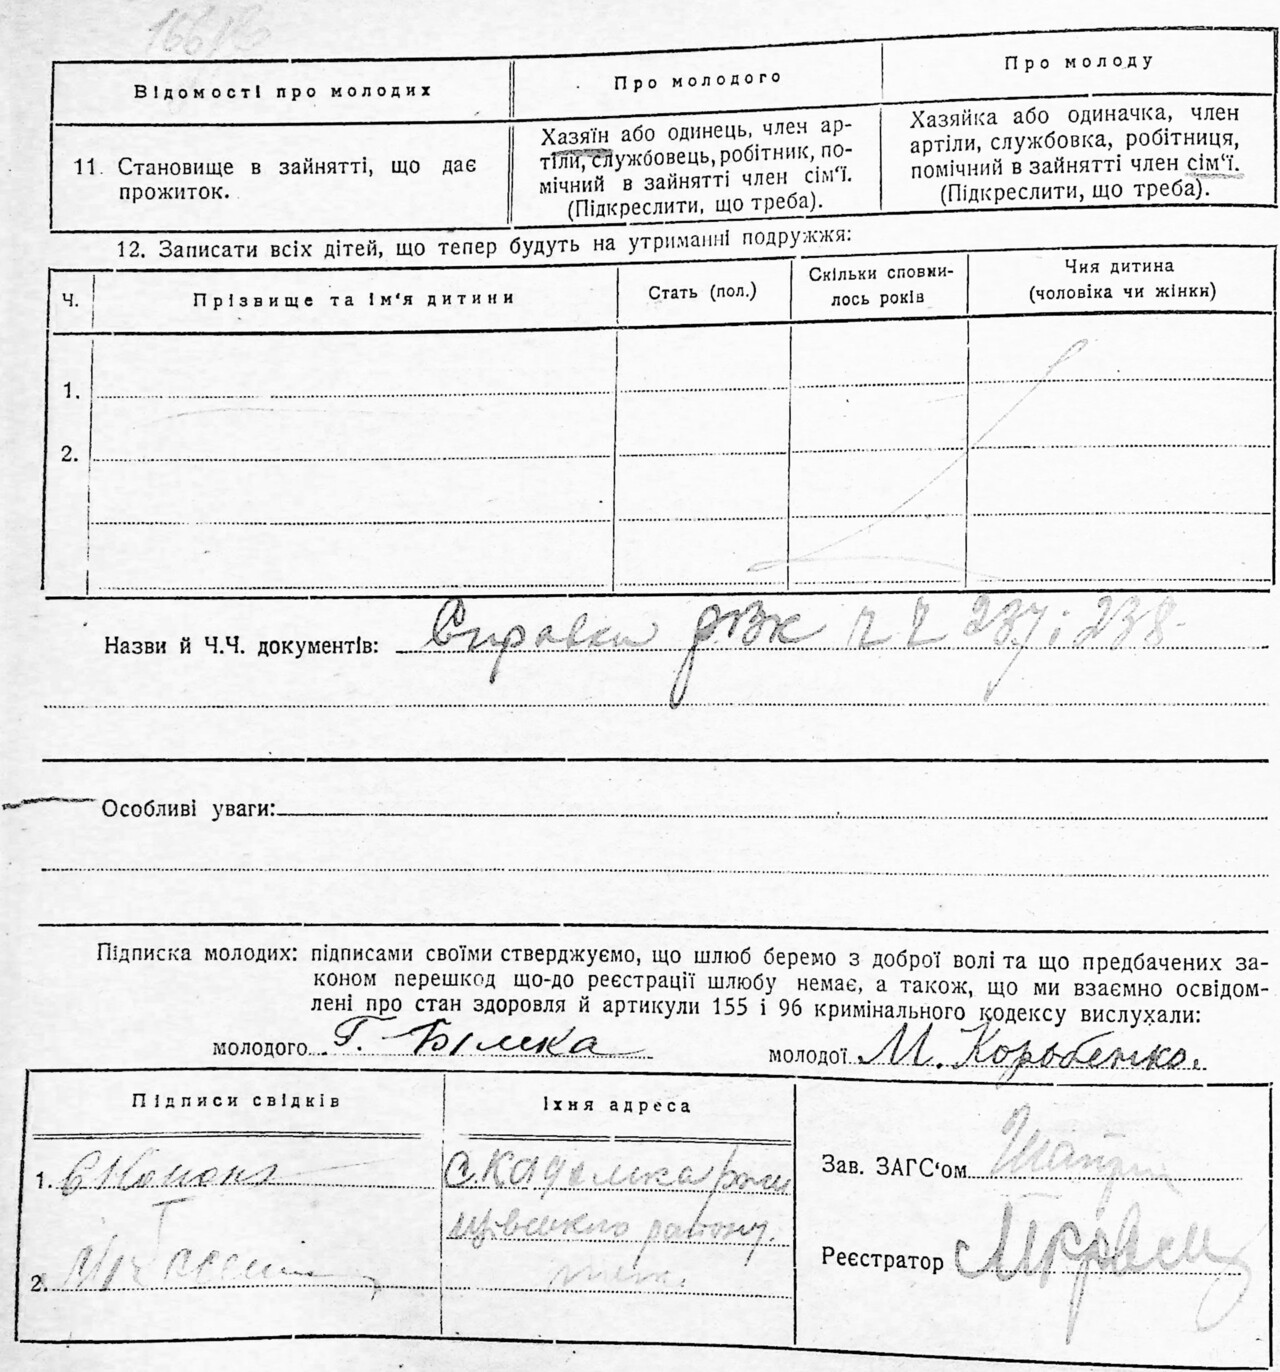 Відомості про молодих
Про молодого
Про молоду
11. Становище в зайнятті, що дає
прожиток.
Хазяїн або одинець, член ар-
тіли, службовець, робітник, по-
мічний в зайнятті член сім'ї.
(Підкреслити, що треба).
Хазяйка або одиначка, член
артіли, службовка, робітниця,
помічний в зайнятті член сім'ї.
(Підкреслити, що треба).
12. Записати всіх дітей, що тепер будуть на утриманні подружжя:
Ч.
Прізвище та ім'я дитини
Стать (пол.)
Скільки сповни-
лось років
Чия дитина
(чоловіка чи жінки)
1.
2.
Назви й Ч.Ч. документів: Справки РВК 237 і 238
Особливі уваги:
Підписка молодих: підписами своїми стверджуємо, що шлюб беремо з доброї волі та що предбачених за-
коном перешкод що-до реєстрації шлюбу немає, а також, що ми взаємно освідом-
лені про стан здоровля й артикули 155 і 96 кримінального кодексу вислухали:
молодого Г. молодої М. Коробенко.
Підписи свідків
Їхня адреса
1.
району.
2.
Зав. ЗАГС'ом
Реєстратор